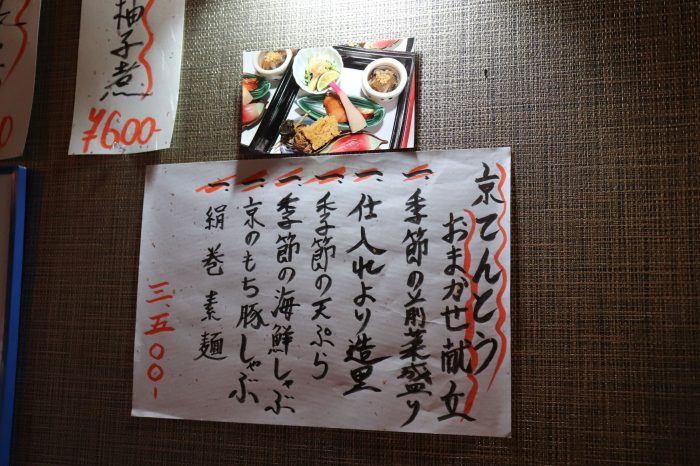 京てんとう
おまかせ献立
一、季節の前菜盛り
一、仕入れより造里
一、季節の天ぷら
一、季節の海鮮しゃぶ
一、京のもち豚しゃぶ
一、絹巻素麺
三、五〇〇-
柚子煮
¥600-